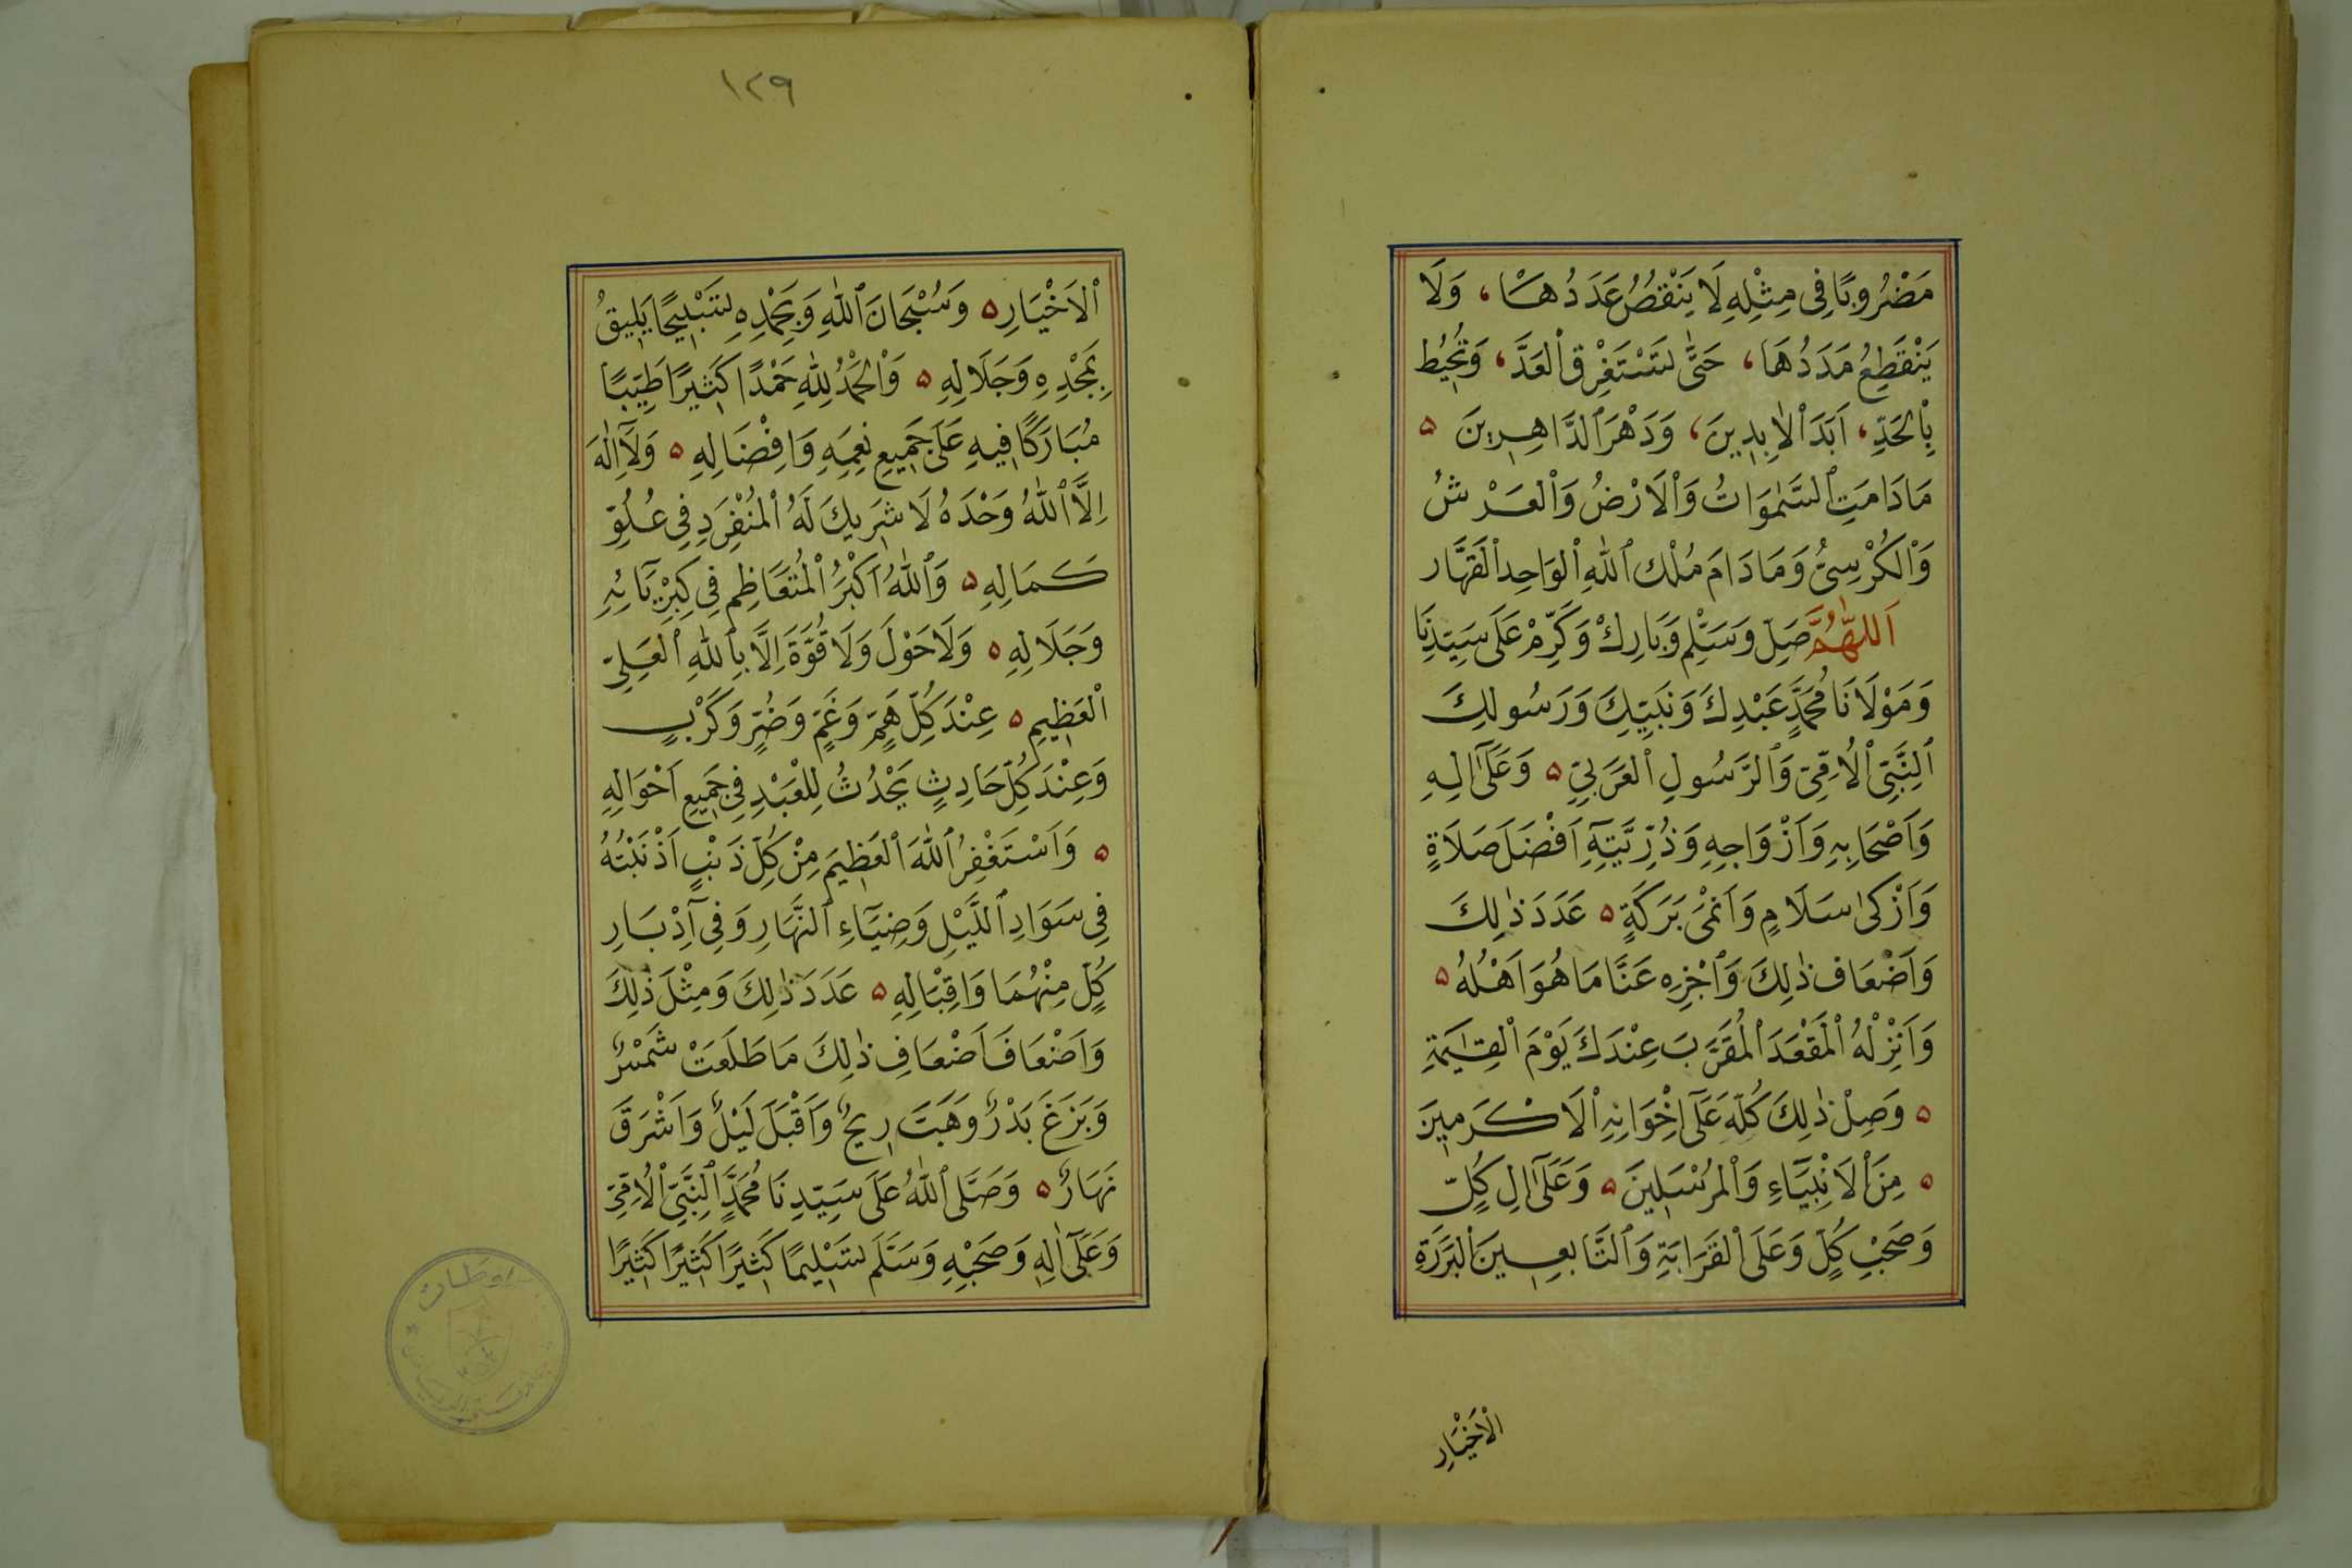 مَضْرُوبًا فِى مِثْلِهِ لَا يَنْقُصُ عَدَدُهَا، وَلَا
يَنْقَطِعُ مَدَدُهَا، حَتّٰى تَسْتَغْرِقَ ٱلْعَدَّ، وَتُحِيْطَ
بِٱلْحَدِّ، اَبَدَ ٱلْاٰبِدِينَ، وَدَهْرَ ٱلدَّاهِرِينَ ۵
مَادَامَتِ ٱلسَّمٰوَاتُ وَٱلْاَرْضُ وَٱلْعَرْشُ
وَٱلْكُرْسِىُّ وَمَادَامَ مُلْكُ ٱللّٰهِ ٱلْوَاحِدِ ٱلْقَهَّارِ
اَللّٰهُمَّ صَلِّ وَسَلِّمْ وَبَارِكْ وَكَرِّمْ عَلَى سَيِّدِنَا
وَمَوْلَانَا مُحَمَّدٍ عَبْدِكَ وَنَبِيِّكَ وَرَسُولِكَ
ٱلنَّبِىِّ ٱلْاُمِّىِّ وَٱلرَّسُولِ ٱلْعَرَبِىِّ ۵ وَعَلَىٰٓ اٰلِهِ
وَاَصْحَابِهِ وَاَزْوَاجِهِ وَذُرِّيَّتِهِٓ اَفْضَلَ صَلَاةٍ
وَاَزْكىٰ سَلَامٍ وَاَنْمٰى بَرَكَةٍ ۵ عَدَدَ ذٰلِكَ
وَاَضْعَافَ ذٰلِكَ وَٱجْزِهِ عَنَّا مَا هُوَ اَهْلُهُ ۵
وَاَنْزِلْهُ ٱلْمَقْعَدَ ٱلْمُقَرَّبَ عِنْدَكَ يَوْمَ ٱلْقِيٰمَةِ
۵ وَصِلْ ذٰلِكَ كُلَّهُ عَلَىٰٓ اِخْوَانِهِ ٱلْاَكْرَمِينَ
۵ مِنَ ٱلْاَنْبِيَآءِ وَٱلْمُرْسَلِينَ ۵ وَعَلَىٰٓ اٰلِ كُلٍّ
وَصَحْبِ كُلٍّ وَعَلَى ٱلْقَرَابَةِ وَٱلتَّابِعِينَ ٱلْبَرَرَةِ
الْاَخْيَارِ
١٢٩
ٱلْاَخْيَارِ ۵ وَسُبْحَانَ ٱللّٰهِ وَبِحَمْدِهِ تَسْبِيْحًا يَلِيقُ
بِمَجْدِهِ وَجَلَالِهِ ۵ وَٱلْحَمْدُ لِلّٰهِ حَمْدًا كَثِيرًا طَيِّبًا
مُبَارَكًا فِيهِ عَلَى جَمِيعِ نِعَمِهِ وَاِفْضَالِهِ ۵ وَلَآ اِلٰهَ
اِلَّا ٱللّٰهُ وَحْدَهُ لَا شَرِيكَ لَهُ ٱلْمُنْفَرِدِ فِى عُلُوِّ
كَمَالِهِ ۵ وَٱللّٰهُ اَكْبَرُ ٱلْمُتَعَاظِمِ فِى كِبْرِيَآئِهِ
وَجَلَالِهِ ۵ وَلَا حَوْلَ وَلَا قُوَّةَ اِلَّا بِٱللّٰهِ ٱلْعَلِىِّ
ٱلْعَظِيمِ ۵ عِنْدَ كُلِّ هَمٍّ وَغَمٍّ وَضُرٍّ وَكَرْبٍ
وَعِنْدَ كُلِّ حَادِثٍ يَحْدُثُ لِلْعَبْدِ فِى جَمِيعِ اَحْوَالِهِ
۵ وَاَسْتَغْفِرُ ٱللّٰهَ ٱلْعَظِيمَ مِنْ كُلِّ ذَنْبٍ اَذْنَبْتُهُ
فِى سَوَادِ ٱللَّيْلِ وَضِيَآءِ ٱلنَّهَارِ وَفِىٓ اِدْبَارِ
كُلٍّ مِنْهُمَا وَاِقْبَالِهِ ۵ عَدَدَ ذٰلِكَ وَمِثْلَ ذٰلِكَ
وَاَضْعَافَ اَضْعَافِ ذٰلِكَ مَا طَلَعَتْ شَمْسٌ
وَبَزَغَ بَدْرٌ وَهَبَّتْ رِيحٌ وَاَقْبَلَ لَيْلٌ وَاَشْرَقَ
نَهَارٌ ۵ وَصَلَّى ٱللّٰهُ عَلَى سَيِّدِنَا مُحَمَّدٍ ٱلنَّبِىِّ ٱلْاُمِّىِّ
وَعَلَىٰٓ اٰلِهِ وَصَحْبِهِ وَسَلَّمَ تَسْلِيمًا كَثِيرًا كَثِيرًا كَثِيرًا